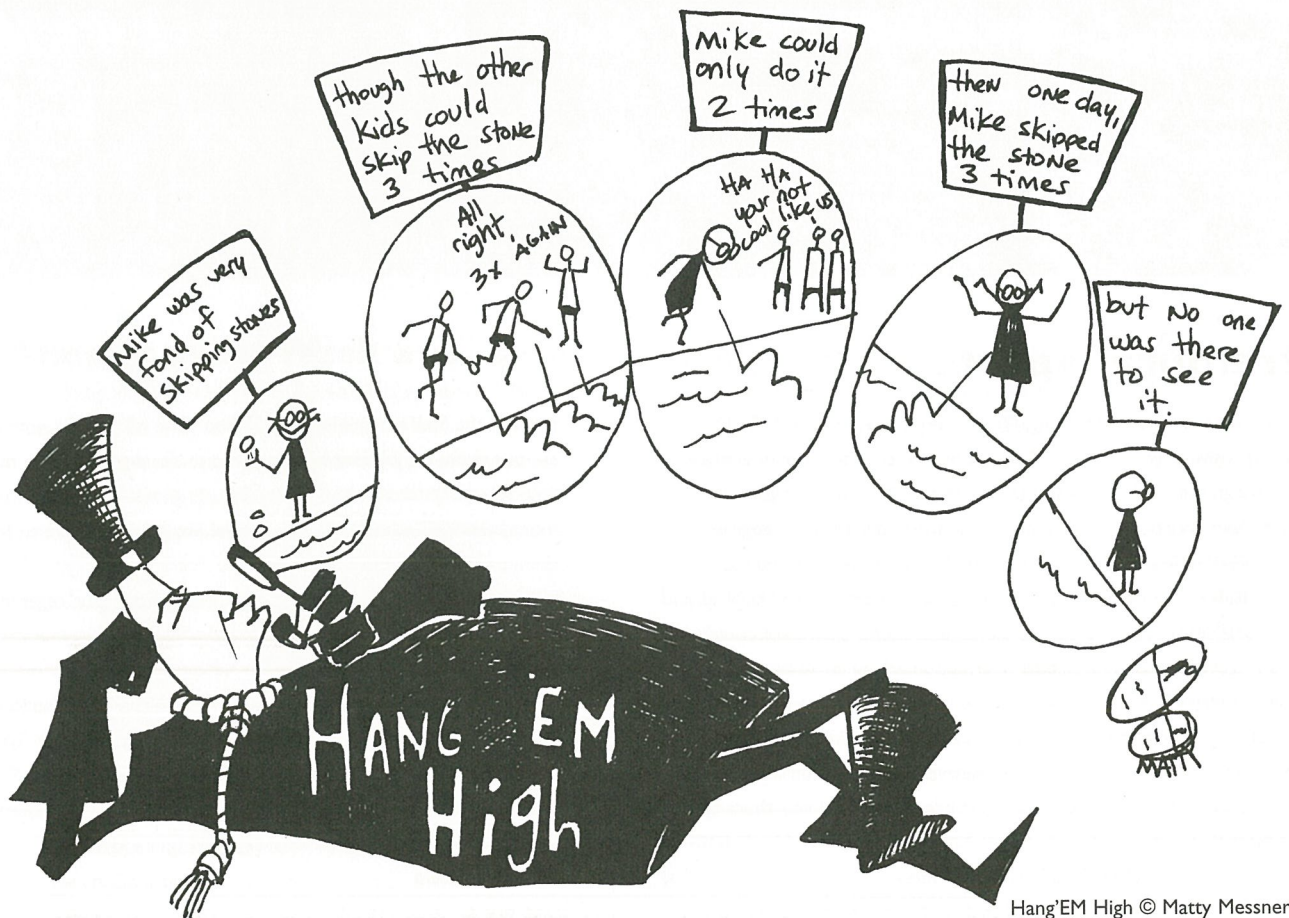 Mike was very
fond of
skipping stones
though the other
kids could
skip the stone
3 times
All
right
3x AGAIN
Mike could
only do it
2 times
HA HA
your not
cool like us
then one day,
Mike skipped
the stone
3 times
but No one
was there
to see
it.
MATT
HANG EM
High
Hang'EM High © Matty Messner